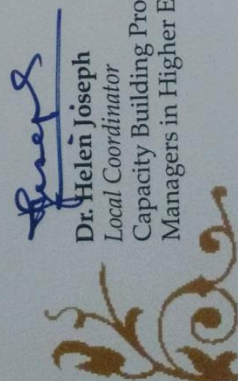 Dr. Helen Joseph
Local Coordinator
Capacity Building Pro
Managers in Higher E